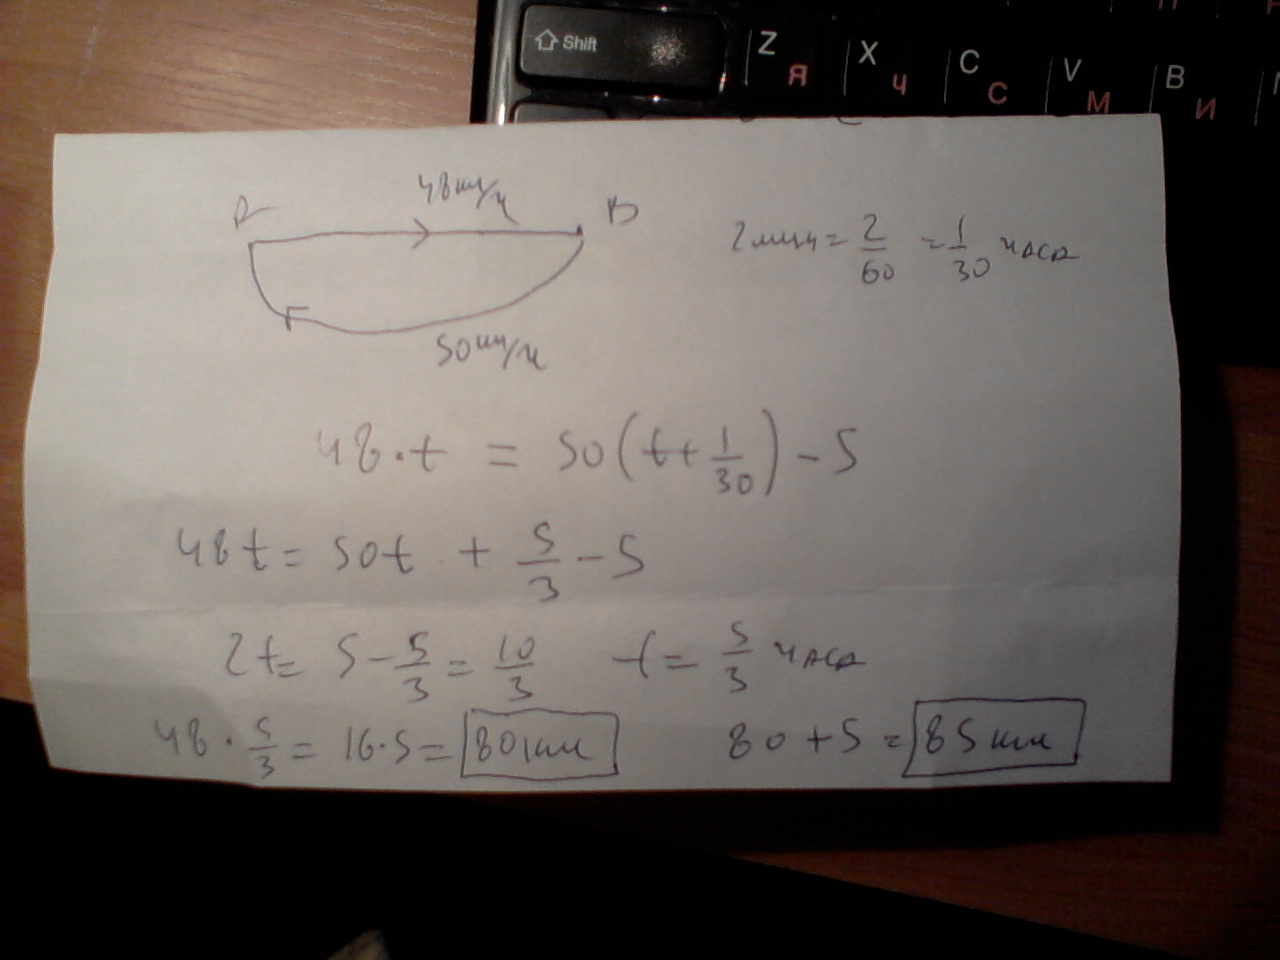 Shift
Z Я X Ч C С V М B И
48 км/ч
A B
2 мин = 2/60 = 1/30 часа
50 км/ч
48·t = 50(t + 1/30) - 5
48t = 50t + 5/3 - 5
2t = 5 - 5/3 = 10/3 t = 5/3 часа
48 · 5/3 = 16·5 = 80 км 80 + 5 = 85 км